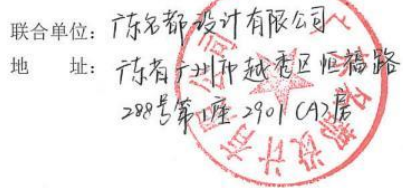 联合单位：广东名都设计有限公司
地　　址：广东省广州市越秀区恒福路
288号第1座2901(A)房